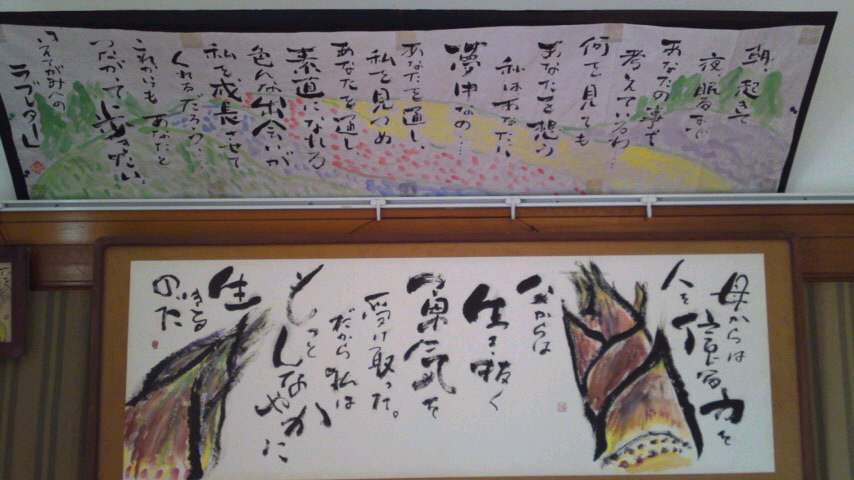 朝、起きて
夜、眠るまで
あなたの事で
考えているわ…
何を見ても
あなたを想う
私はあなたに
夢中なの…
あなたを通し、
私を見つめ
あなたを通し、
素直になれる
色んな出会いが
私を成長させて
くれるだろう…
これからも あなたと
つながって歩きたい。
ラブレター
母からは
人を信じる力を
父からは
生き抜く
勇気を
受け取った。
だから、私は
もっとしなやかに
生きる
のだ